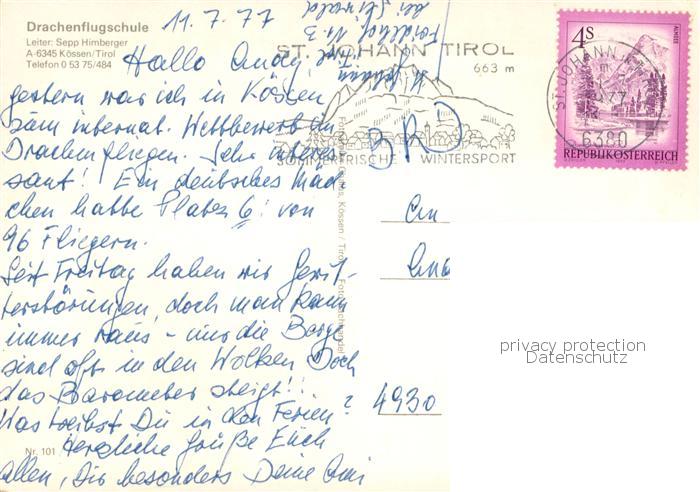 Drachenflugschule
Leiter: Sepp Himberger
A-6345 Kössen/Tirol
Telefon 0 53 75/484
11.7.77
Hallo Andy!
gestern war ich in Kössen
zum internat. Wettbewerb im
Drachenfliegen. Sehr interes
sant! Ein deutsches Mäd
chen hatte Platz 6! von
96 Fliegern.
Seit Freitag haben wir Gewit-
terstörungen, doch man kann
immer raus - nur die Berge
sind oft in den Wolken. Doch
das Barometer steigt!
Was treibst Du in den Ferien?
Herzliche Grüße Euch
allen, Dir besonders Deine Omi
Nr. 101
Kössen / Tirol
ST. JOHANN TIROL
663 m
SOMMERFRISCHE WINTERSPORT
BRD
An
4930
4S
ALMSEE
REPUBLIK ÖSTERREICH
ST. JOHANN
6380
privacy protection
Datenschutz